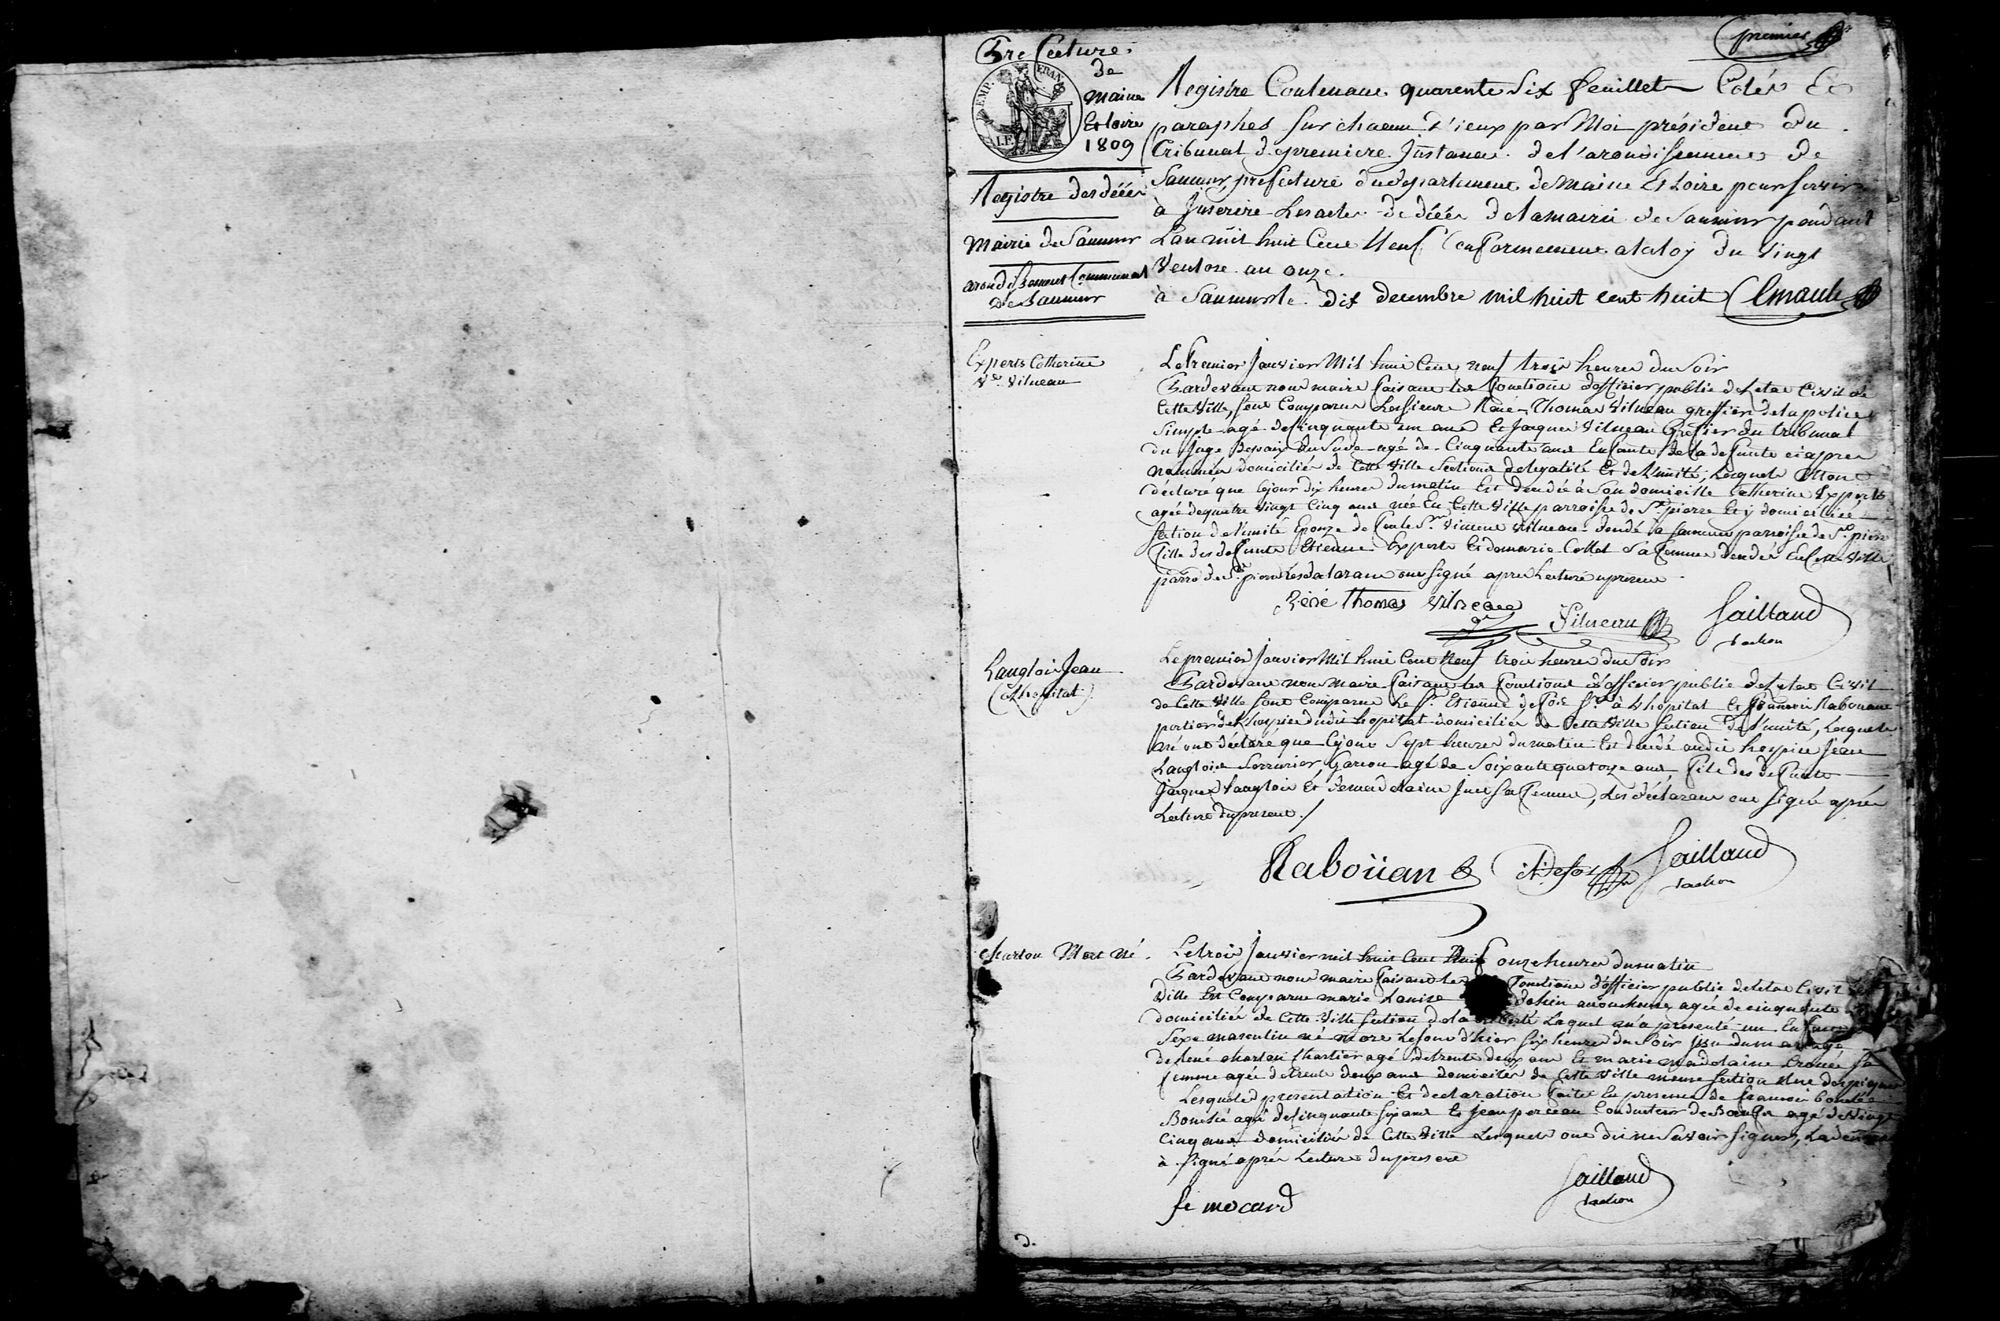 premier
Prefecture
de
Maine
Et Loire
1809
EMP. FRAN.
Registre des décés
Mairie de Saumur
arondissement Communal
de Saumur
Registre Contenant quarente six feuillets Cotés Et
paraphés sur chacun d'ieux par Moi président du
Tribunal de premiere Instance de l'arondissement de
Saumur, prefecture du departement de Maine Et Loire pour servir
à Inscrire Les actes de décés de la mairie de Saumur pendant
L'an mil huit Cent Neuf Conformement a la loy du vingt
Ventose an onze.
à Saumur le dix decembre mil huit cent huit
Experts Catherine
Ve Vilneau
Le Premier Janvier Mil huit Cent neuf trois heures du Soir
Pardevant nous maire faisant les fonctions d'officier public de l'etat Civil de
Cette Ville, sont Comparus Les sieurs René Thomas Vilneau greffier de la police
Simple agé de Cinquante un ans Et Jacques Vilneau Greffier du tribunal
du Juge de paix du Sude agé de Cinquante ans Enfants de la defunte ci apres
nommée domiciliés de Cette Ville Sections de legalité Et de L'unité, Lesquels M'ont
déclaré que Cejour dix heures du matin Est décédée à Son domicille Catherine Experts
agée de quatre Vingt Cinq ans née En Cette Ville parroisse de St pierre Et y domiciliée
section de l'unité Epouze de feu le Sr Vincent Vilneau décédé à Saumur parroisse de St pierre
fille des defunts Etienne Experts Et de marie Collet Sa femme décédés En Cette Ville
parr. de St pierre Les declarans ont Signé apres Lecture du present
René Thomas Vilneau
Vilneau
Gaillaud
Langlois Jean
(à l'hopital)
Le premier Janvier Mil huit Cent Neuf trois heures du Soir
Pardevant nous Maire faisant les fonctions d'officier public de Letat Civil
de Cette Ville sont Comparus Le Sr Etienne defois à L'hôpital Et francois Rabouan
portier de L'hospice dudit hopital domiciliés de Cette Ville section de l'unité, Lesquels
m'ont déclaré que Cejour Sept heures du matin Est décédé audit hospice Jean
Langlois Serrurier Garcon agé de Soixante quatorze ans, fils des defunts
Jacques Langlois Et de madelaine Sa femme, Les déclarans ont Signé après
Lecture du present.
Raboüan
Defois
Gaillaud
Charton Mort Né
Le trois Janvier mil huit Cent Neuf onze heures du matin
Pardevant nous maire faisant les fonctions d'officier public de letat Civil de
Ville Est Comparue marie Louise accoucheuse agée de cinquante
domiciliée de Cette Ville section de la Laquelle m'a présenté un Enfant
Sexe masculin né mort Le jour d'hier six heures du Soir issu du mariage
de René charton Chartier agé de trente deux ans Et marie madelaine sa
femme agée de trente deux ans domiciliés de Cette Ville meme section
Lesquelles presentation Et declaration faites En presence de francois
agé de Cinquante six ans Et Jean porceau Conducteur de Boeufs agé de Vingt
Cinq ans domiciliés de Cette Ville Lesquels ont dit ne Savoir Signer,
à Signé après Lecture du present
fe mocard
Gaillaud